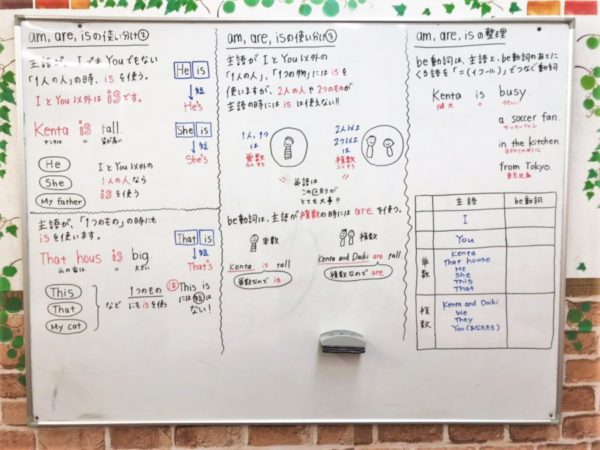 am, are, isの使い分け②
主語が、IでもYouでもない
「1人の人」の時、isを使う。
IとYou以外はisです。
He is
↓短
He's
Kenta is tall.
ケンタは 背が高い
She is
↓短
She's
He
She
My father
IとYou以外の
1人の人なら
isを使う
主語が、「1つのもの」の時にも
isを使います。
That hous is big
あの家は 大きい
That is
↓短
That's
This
That
My cat
など
1つのもの
にもisを使う
注 This is
には短は
ない!
am, are, isの使い分け③
主語がIとYou以外の
「1人の人」、「1つの物」にはisを
使いますが、2人の人や2つのものが
主語の時にはisは使えない!!
1人、1つ
は
単数
2人以上
2つ以上
は
複数
英語は
この区別が
とても大事!!
be動詞は、主語が複数の時にはareを使う。
単数
複数
Kenta is tall
単数なのでis
Kenta and Daiki are tall
複数なのでare
am, are, isの整理
be動詞は、主語と、be動詞のあとに
くる語を「=(イコール)」でつなぐ動詞
Kenta is busy.
健太 =
a soccer fan.
サッカーファン
in the kitchen
from Tokyo.
東京出身
主語 be動詞
I
You
単数
Kenta
That house
He
She
This
That
複数
Kenta and Daiki
We
They
You(あなたたち)